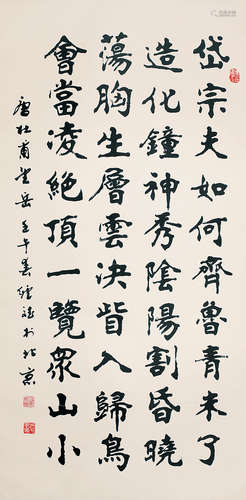 岱宗夫如何齊魯青未了
造化鐘神秀陰陽割昏曉
蕩胸生層雲決眥入歸鳥
會當凌絕頂一覽眾山小
唐杜甫望岳 壬午春 於北京